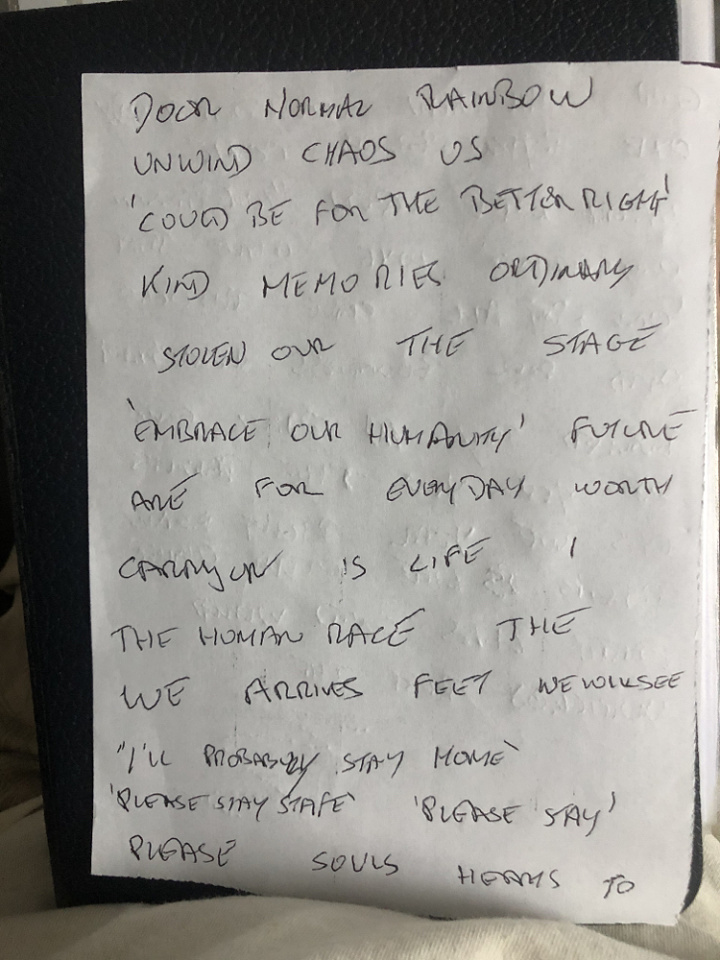 DOOR NORMAL RAINBOW
UNWIND CHAOS US
'COULD BE FOR THE BETTER RIGHT'
KIND MEMORIES ORDINARY
STOLEN OUR THE STAGE
'EMBRACE OUR HUMANITY' FUTURE
ARE FOR EVERYDAY WORTH
CARRY ON IS LIFE I
THE HUMAN RACE THE
WE ARRIVES FEET WE WILL SEE
"I'LL PROBABLY STAY HOME'
'PLEASE STAY STAFE' 'PLEASE STAY'
PLEASE SOULS HEARTS TO